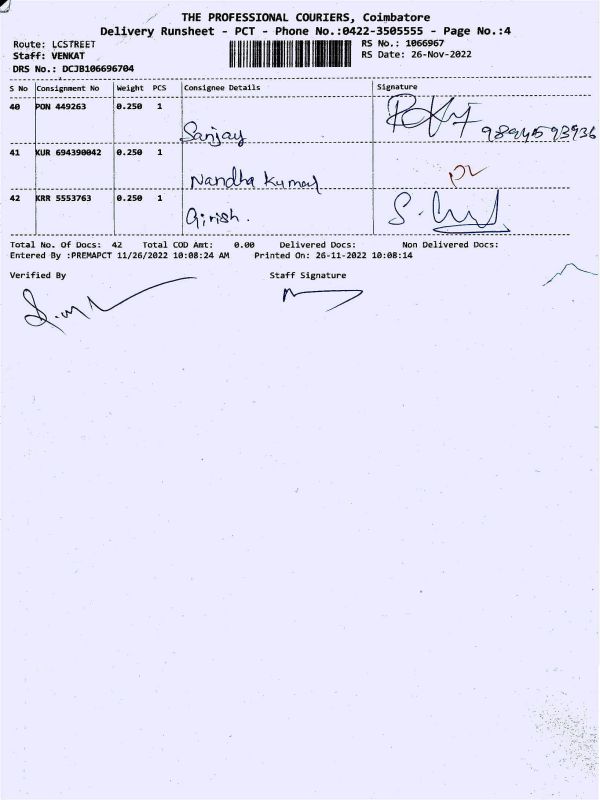 THE PROFESSIONAL COURIERS, Coimbatore
Delivery Runsheet - PCT - Phone No.:0422-3505555 - Page No.:4
Route: LCSTREET RS No.: 1066967
Staff: VENKAT RS Date: 26-Nov-2022
DRS No.: DCJB106696704
S No Consignment No Weight PCS Consignee Details Signature
40 PON 449263 0.250 1
Sanjay
41 KUR 694390042 0.250 1
Nandha Kumar
42 KRR 5553763 0.250 1
Girish.
Total No. Of Docs: 42 Total COD Amt: 0.00 Delivered Docs: Non Delivered Docs:
Entered By :PREMAPCT 11/26/2022 10:08:24 AM Printed On: 26-11-2022 10:08:14
Verified By Staff Signature